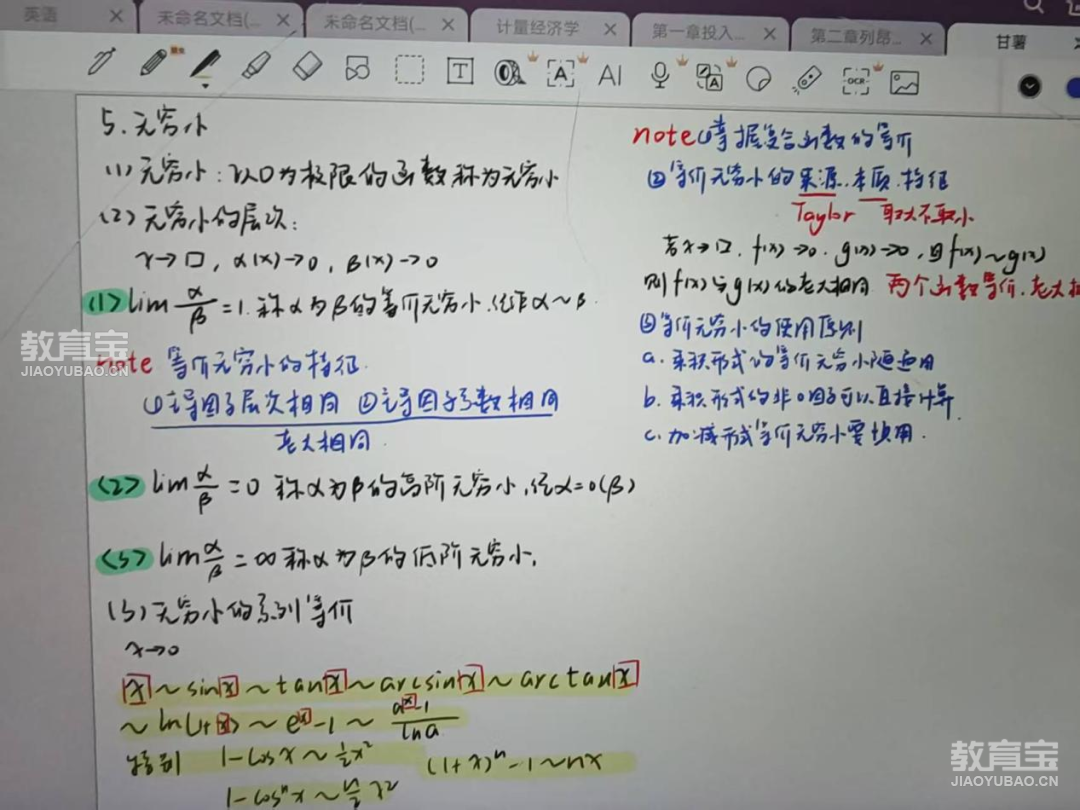 英语
未命名文档(...
未命名文档(...
计量经济学
第一章投入...
第二章列昂...
甘薯
T
A
AI
OCR
5. 无穷小
(1) 无穷小：以0为极限的函数称为无穷小
(2) 无穷小的层次：
x→□, α(x)→0, β(x)→0
(1) lim α/β = 1. 称α为β的等价无穷小. 记作α~β.
note 等价无穷小的特征.
①主导因子层次相同 ②主导因子系数相同
老大相同.
(2) lim α/β = 0 称α为β的高阶无穷小, 记α=o(β)
(3) lim α/β = ∞ 称α为β的低阶无穷小.
(3) 无穷小的系列等价
x→0
x ~ sinx ~ tanx ~ arcsinx ~ arctanx
~ ln(1+x) ~ eˣ-1 ~ (aˣ-1)/lna
特别 1-cosx ~ ½x² (1+x)ⁿ-1 ~ nx
1-cosⁿx ~ n/2 x²
note ①掌握复合函数的等价
②等价无穷小的来源. 本质. 特征
Taylor 取大不取小
若x→□, f(x)→0, g(x)→0, 且f(x)~g(x)
则f(x)与g(x)的老大相同 两个函数等价, 老大相
③等价无穷小的使用原则
a. 乘积形式的等价无穷小随便用
b. 乘积形式的非0因子可以直接计算.
c. 加减形式等价无穷小要慎用.
教育宝
JIAOYUBAO.CN
教育宝
JIAOYUBAO.CN